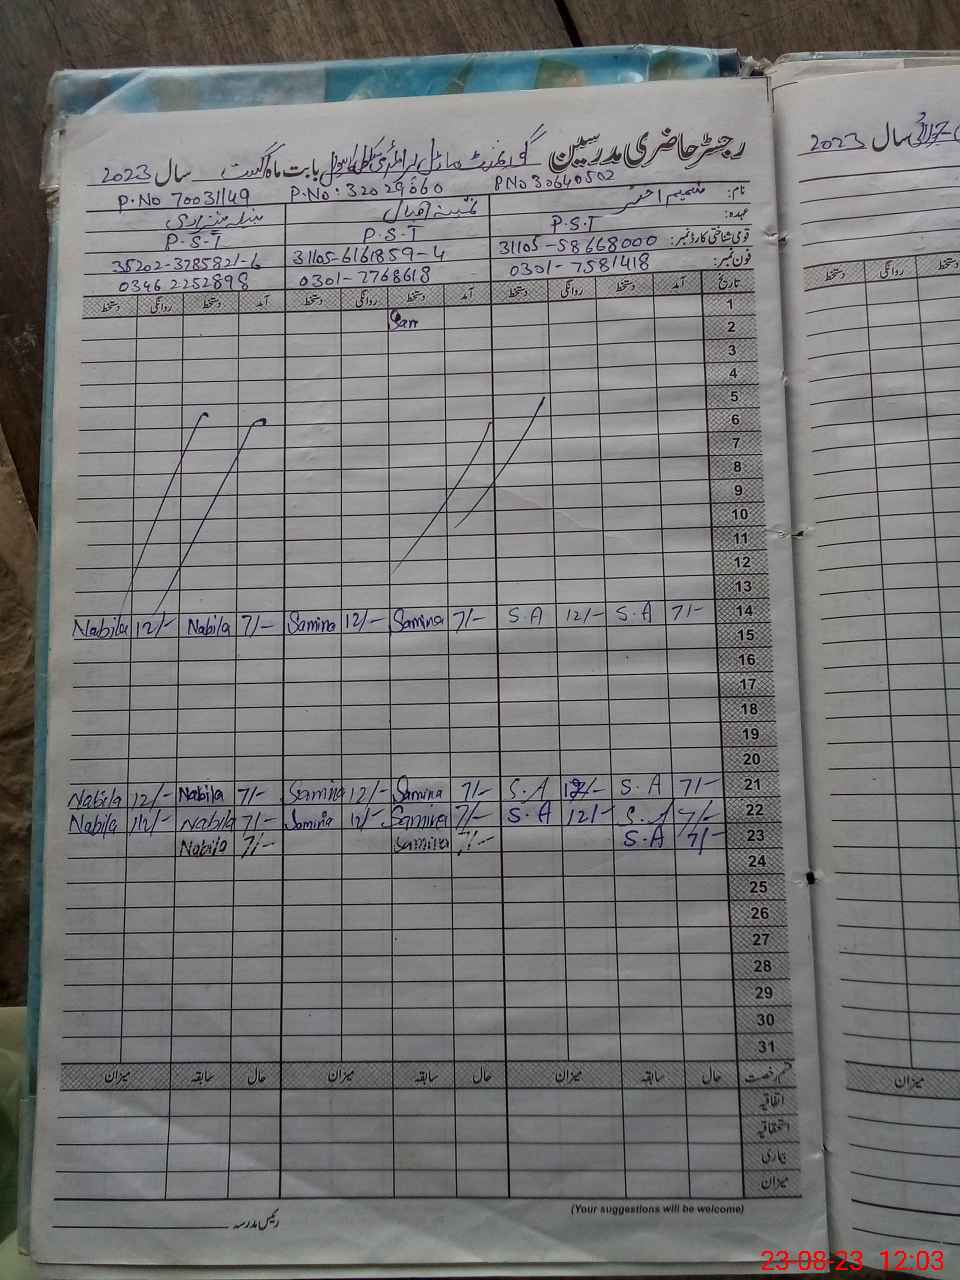 رجسٹر حاضری مدرسین گورنمنٹ ماڈل پرائمری سکول بابت ماہ اگست سال 2023
نام: شمیم اختر P.No 30640502 ثمینہ اقبال P.No: 32029660 P.No 70031149
عہدہ: P.S.T P.S.T P.S.T
قومی شناختی کارڈ نمبر: 31105-58668000 31105-6161859-4 35202-3785821-6
فون نمبر: 0301-7581418 0301-7768618 0346 2252898
تاریخ آمد دستخط روانگی دستخط آمد دستخط روانگی دستخط آمد دستخط روانگی دستخط
1
2 Sam
3
4
5
6
7
8
9
10
11
12
13
14 7/- S.A 12/- S.A 7/- Samina 12/- Samina 7/- Nabila 12/- Nabila
15
16
17
18
19
20
21 7/- S.A 12/- S.A 7/- Samina 12/- Samina 7/- Nabila 12/- Nabila
22 7/- S.A 12/- S.A 7/- Samina 12/- Samina 7/- Nabila 12/- Nabila
23 7/- S.A 7/- Samina 7/- Nabila
24
25
26
27
28
29
30
31
قسم رخصت حال سابقہ میزان حال سابقہ میزان حال سابقہ میزان
اتفاقیہ
استحقاقیہ
بیماری
میزان
(Your suggestions will be welcome)
رئیس مدرسہ
سال 2023
روانگی دستخط
میزان
23-08-23 12:03